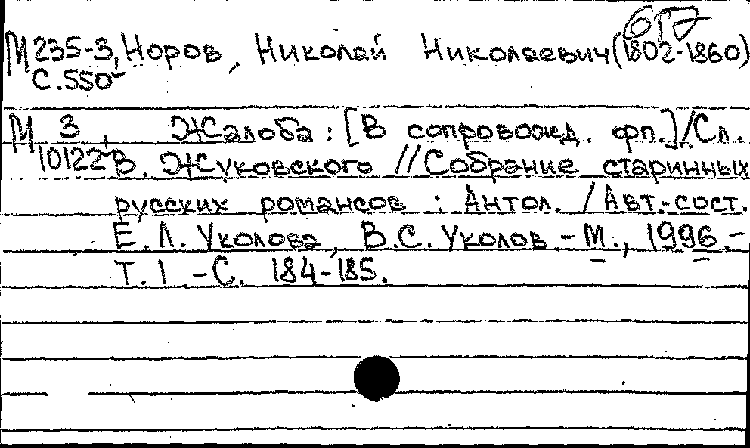 М 235-3, Норов, Николай Николаевич (1802-1860)
С.550
М 3, Жалоба : [В сопровожд. фп.] / Сл.
10122 В. Жуковского // Собрание старинных
русских романсов : Антол. / Авт.-сост.
Е. Л. Уколова, В.С. Уколов. - М., 1996. -
Т. 1. - С. 184-185.